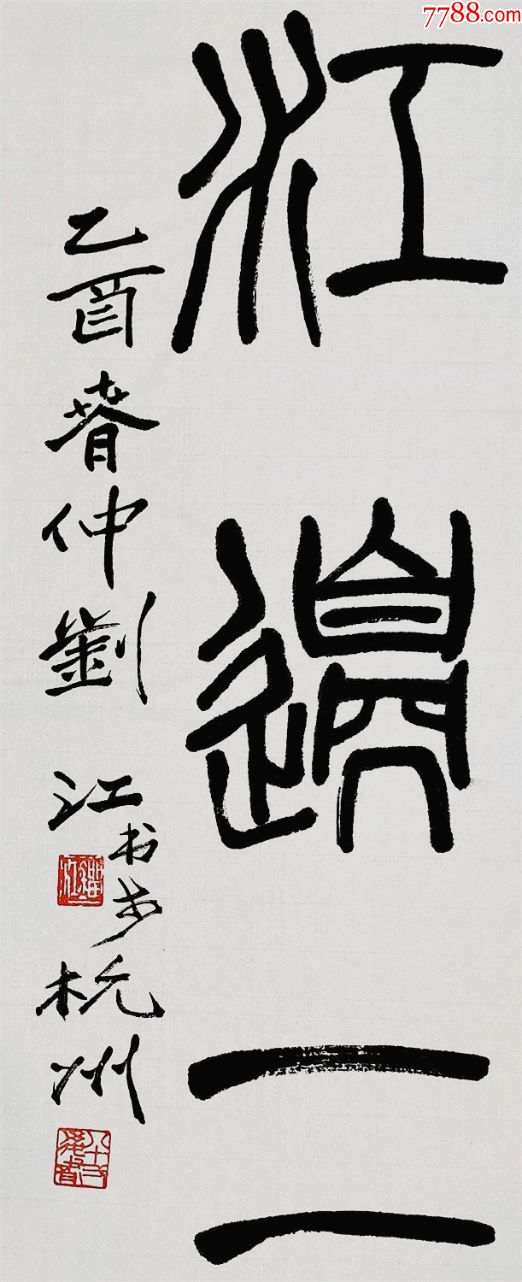 7788.com
江邊二
乙酉春仲劉江书於杭州